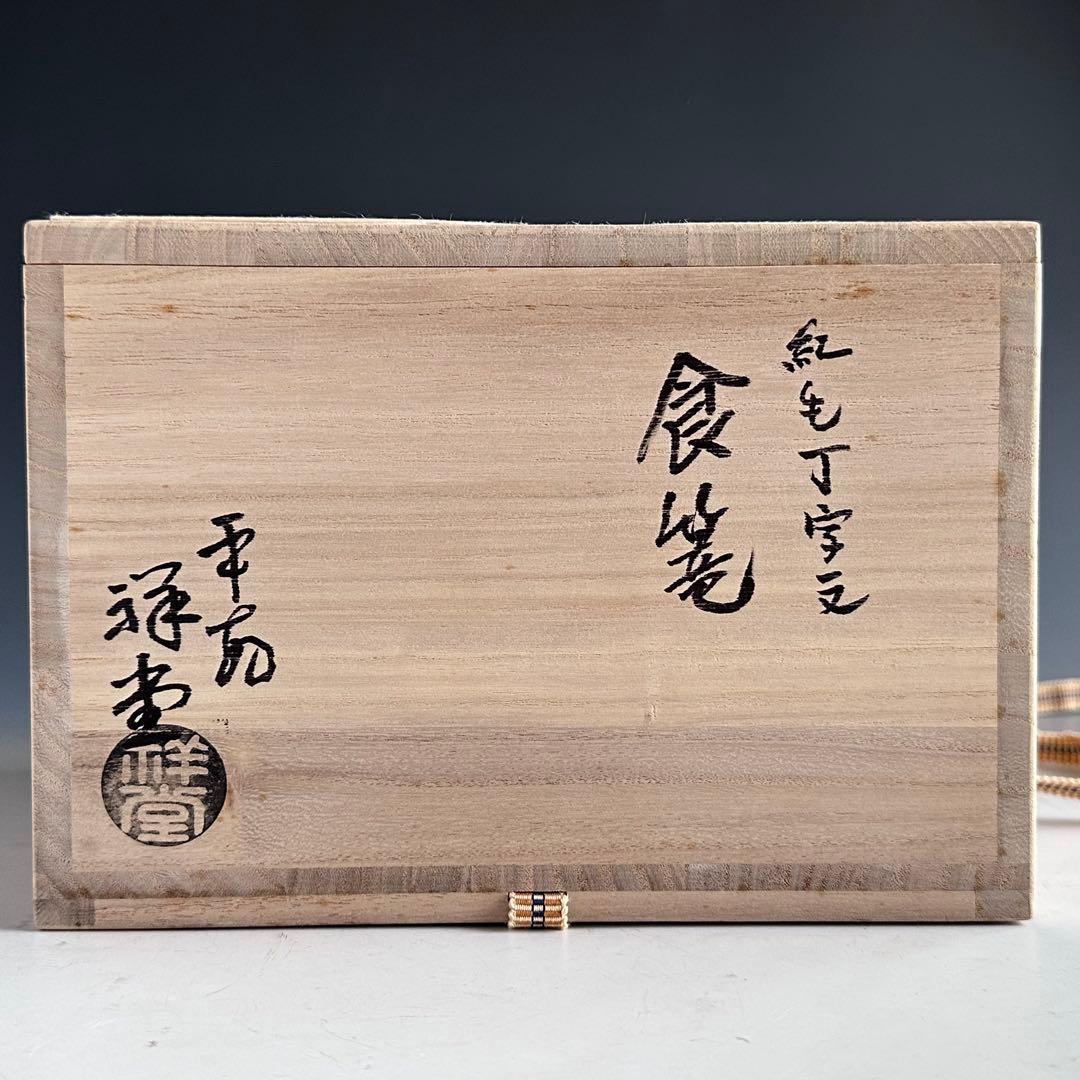 紅毛丁字文
食篭
平安
祥堂
祥堂